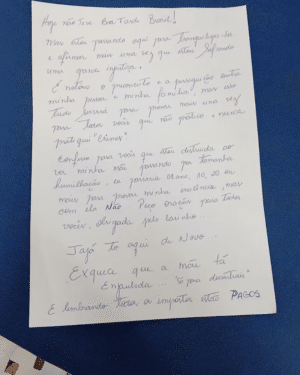 Hoje não Tive Boa Tarde Brasil!
Mas estou passando aqui para Tranquilizá-los
e afirmar mais uma vez que estou Sofrendo
uma grande injustiça.
É notório o preconceito e a perseguição contra
minha pessoa e minha família, mas isso
Tudo servirá para provar mais uma vez
para Todos vocês que não pratico e nunca
pratiquei "Crimes".
Confesso para vocês que estou destruída ao
ver minha mãe passando por tamanha
humilhação, eu passaria 01 ano, 10, 20 ou
mais para provar minha inocência, mas
com ela Não. Peço orações para todos
vocês, obrigada pelo carinho.
Jajá To aqui de Novo...
Esquece que a mãe tá
Enjaulada... "É para descontrair"
E lembrando todos os impostos estão PAGOS